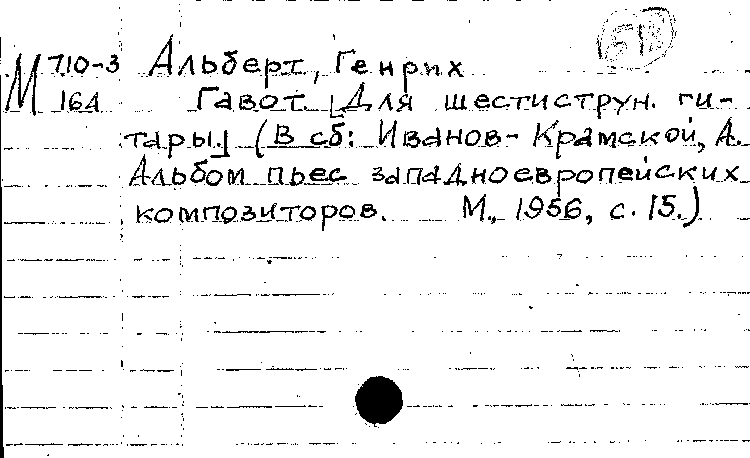 М 710-3 Альберт, Генрих
164 Гавот. [Для шестиструн. ги-
тары] (В сб: Иванов-Крамской, А.
Альбом пьес западноевропейских
композиторов. М., 1956, с. 15.)